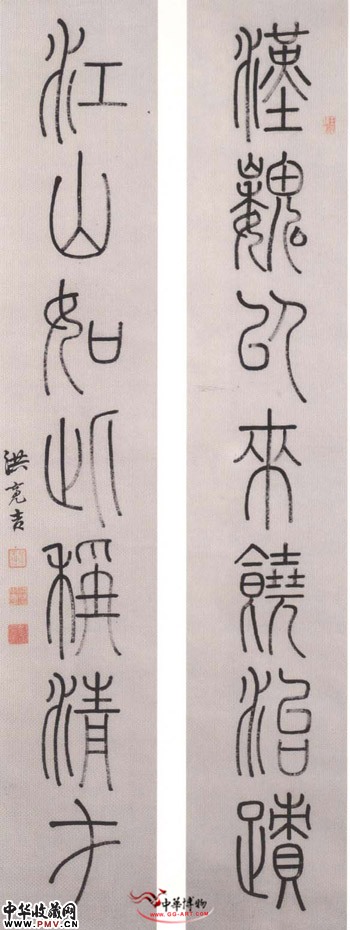 漢魏以來饒治蹟
江山如此稱清才
洪亮吉
中華博物
WWW.GG-ART.COM
中华收藏网
WWW.PMV.CN